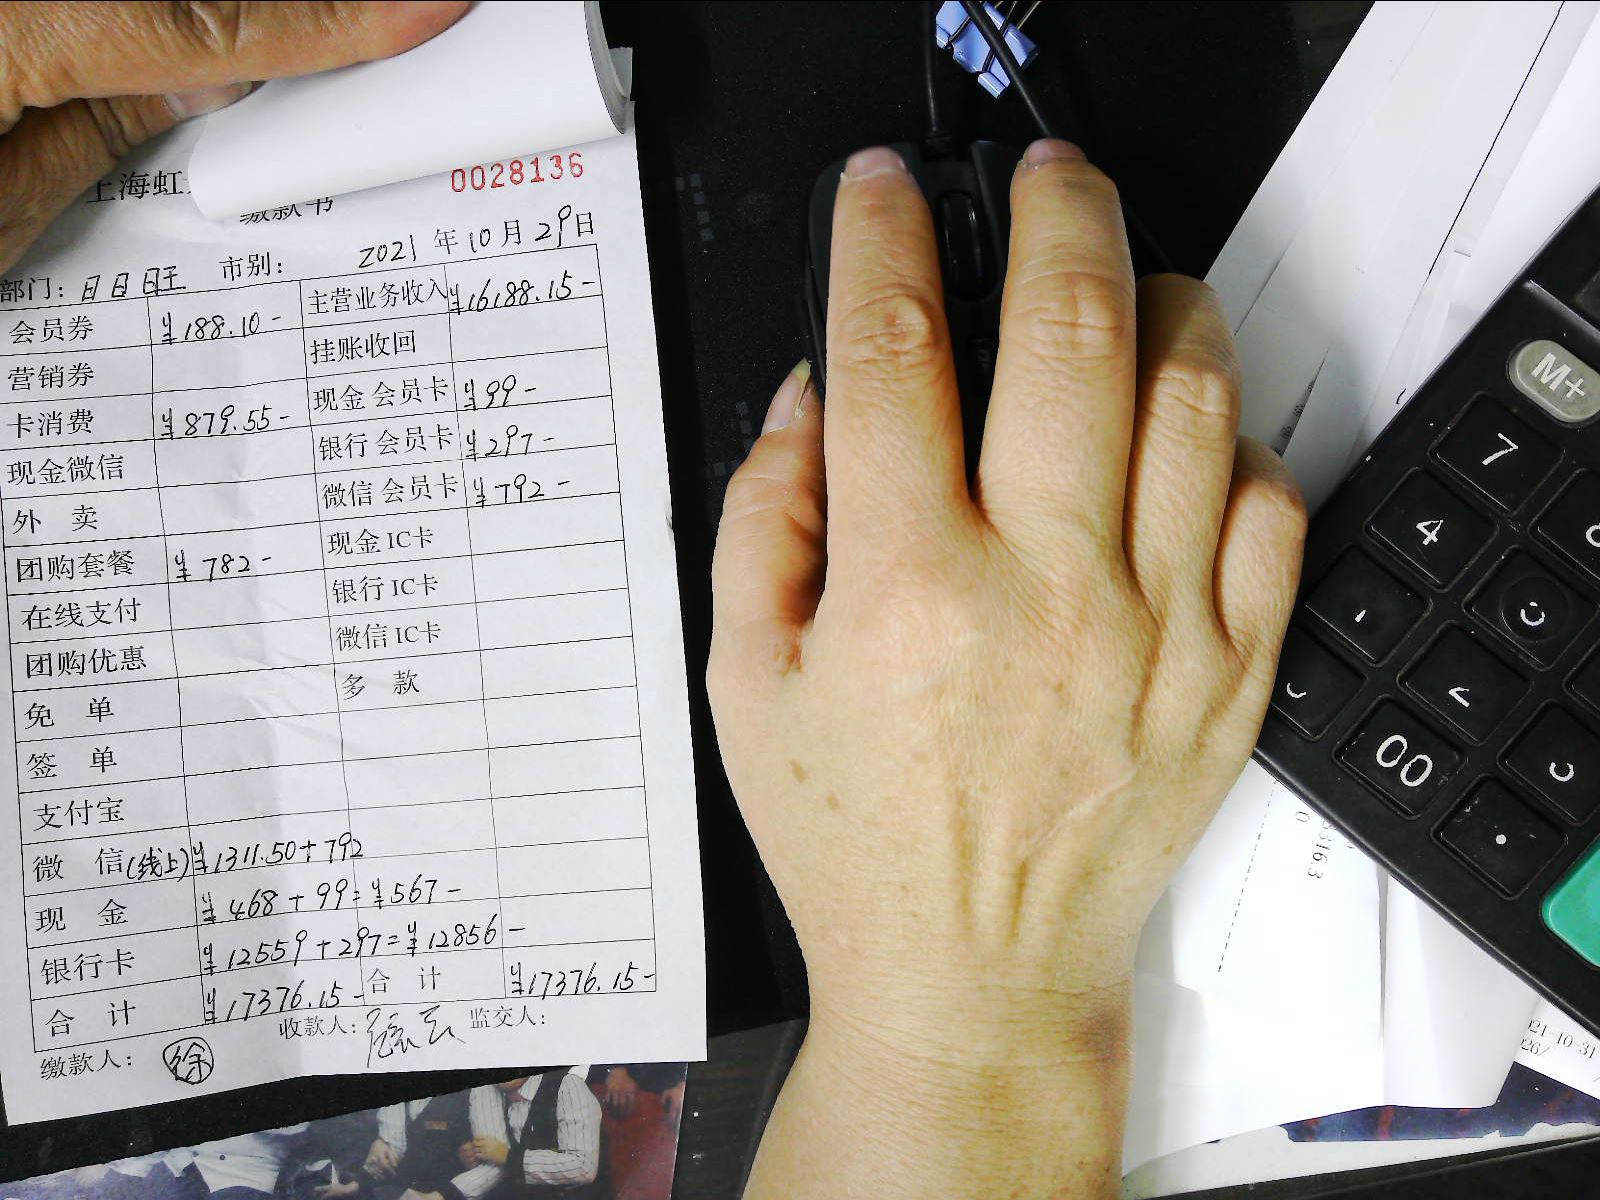 上海虹
0028136
缴款书
部门: 日日旺 市别: 2021年10月29日
会员券 ¥188.10- 主营业务收入 ¥16188.15-
营销券 挂账收回
卡消费 ¥879.55- 现金会员卡 ¥99-
现金微信 银行会员卡 ¥297-
外 卖 微信会员卡 ¥792-
团购套餐 ¥782- 现金IC卡
在线支付 银行IC卡
团购优惠 微信IC卡
免 单 多 款
签 单
支付宝
微 信(线上) ¥1311.50+792
现 金 ¥468+99=¥567-
银行卡 ¥12559+297=¥12856-
合 计 ¥17376.15- 合 计 ¥17376.15-
缴款人: 徐 收款人: 监交人:
M+
7
4
00
.
3316.3
0
21-10-31
26/